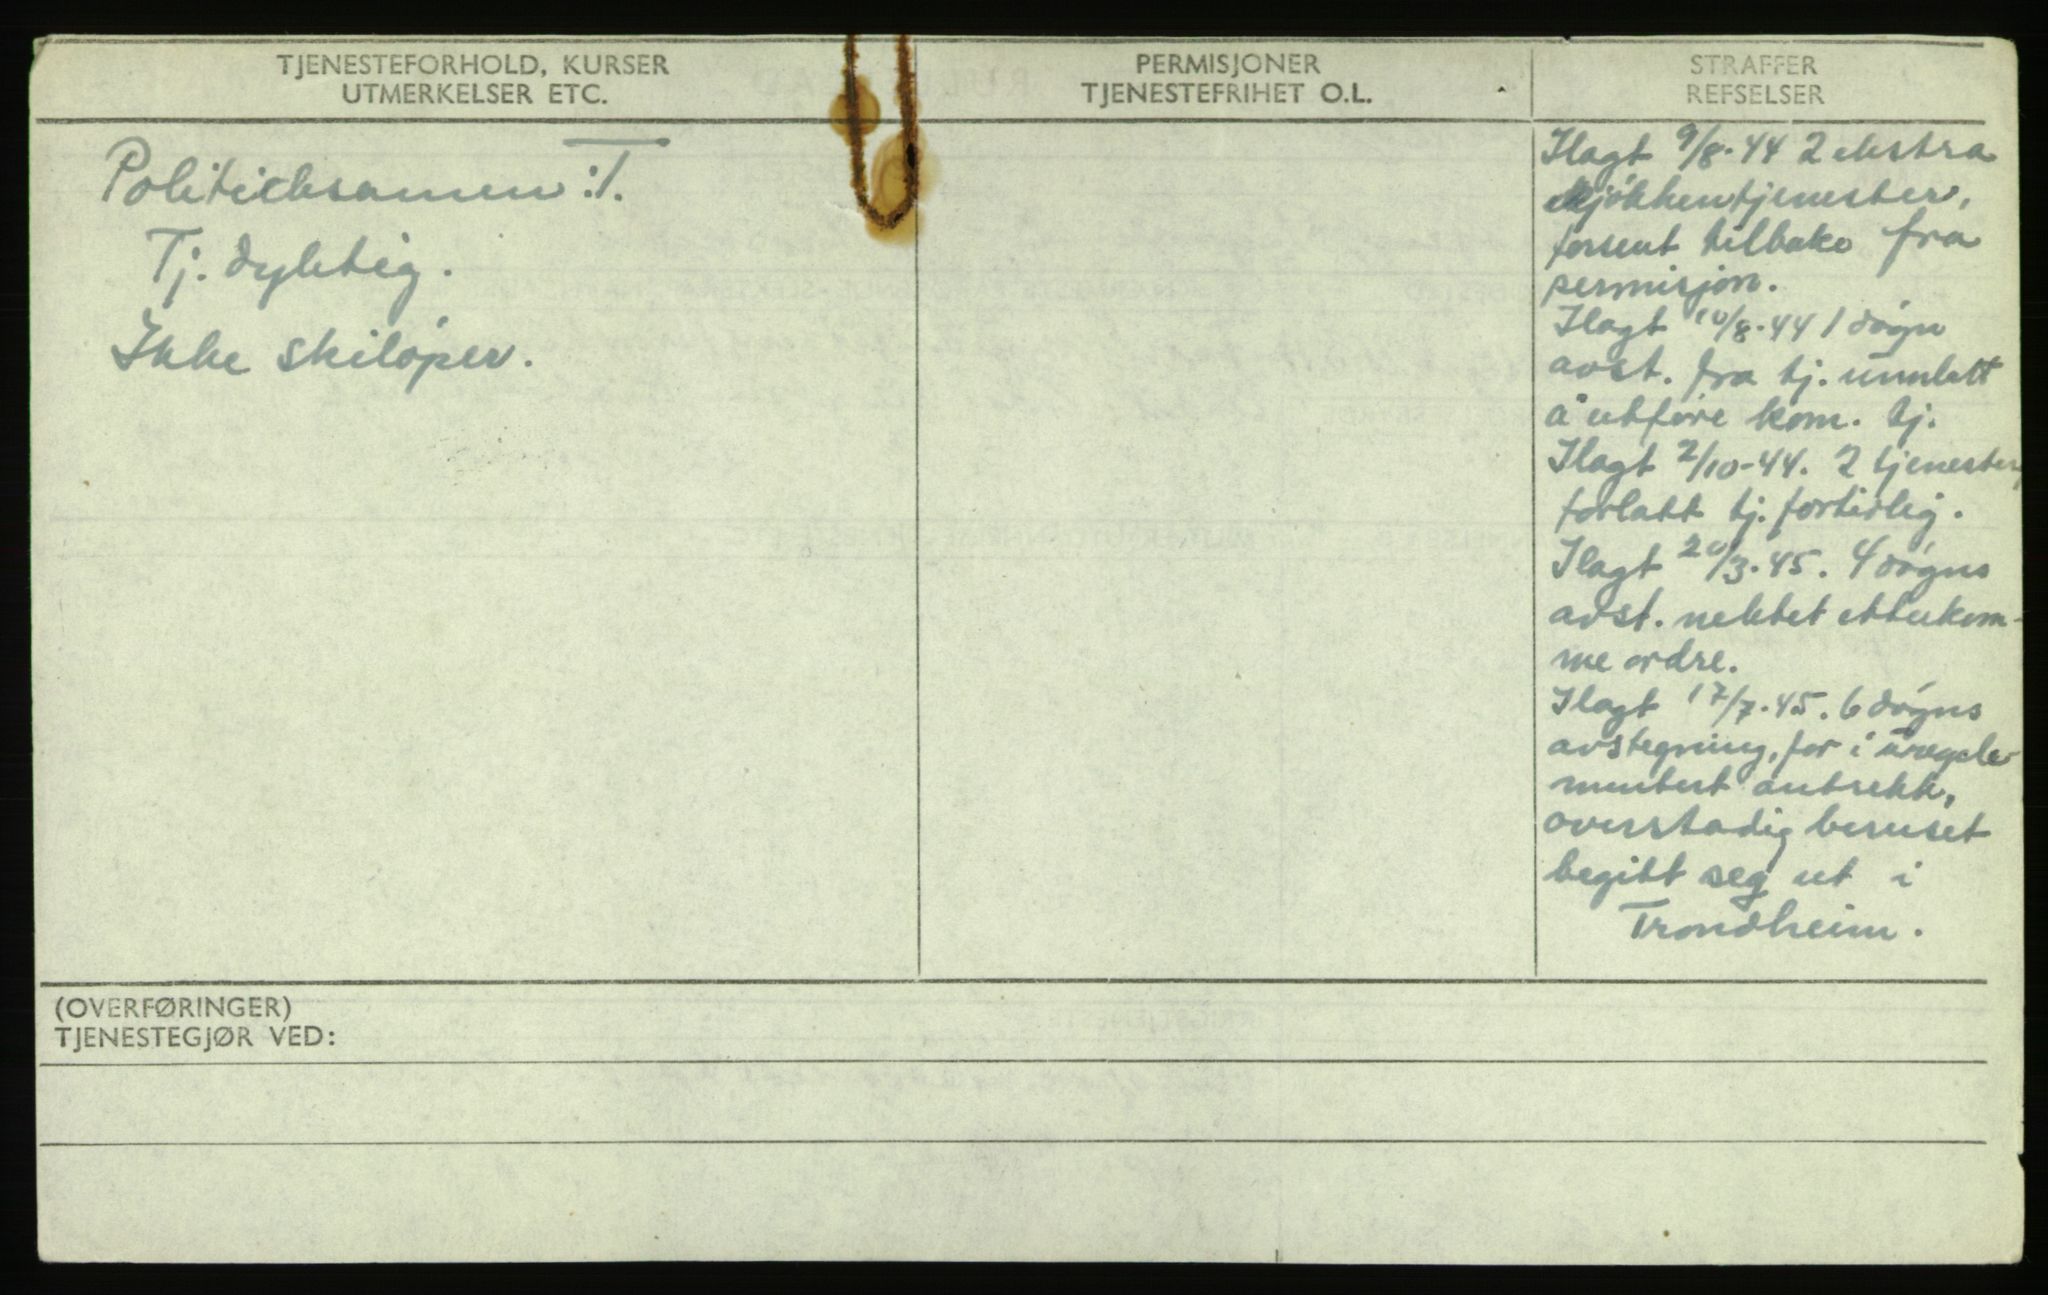 TJENESTEFORHOLD, KURSER
UTMERKELSER ETC.
PERMISJONER
TJENESTEFRIHET O.L.
STRAFFER
REFSELSER
Politieksamen: T.
Tj. dyktig.
Ikke skiløper.
Ilagt 9/8-44 2 ekstra
kjøkkentjenester,
forsent tilbake fra
permisjon.
Ilagt 10/8-44 1 døgn
avst. fra tj. unnlatt
å utføre kom. tj.
Ilagt 2/10-44. 2 tjenester,
forlatt tj. fortidlig.
Ilagt 20/3-45. 4 døgns
avst. nektet etterkom-
me ordre.
Ilagt 17/7-45. 6 døgns
avstegning, for i uregele-
mentert antrekk,
overstadig beruset
begitt seg ut i
Trondheim.
(OVERFØRINGER)
TJENESTEGJØR VED: